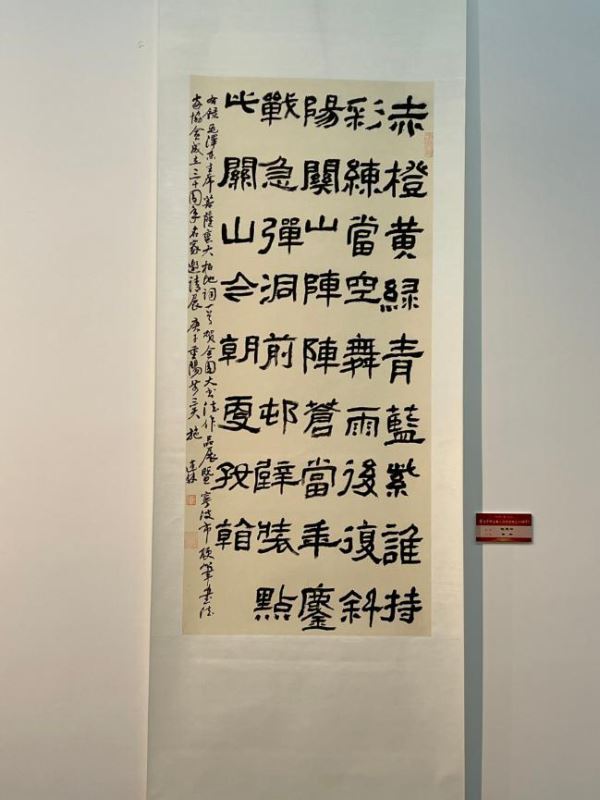 赤橙黄綠青藍紫誰持
彩練當空舞雨後復斜
陽關山陣陣蒼當年鏖
戰急彈洞前邨壁裝點
此關山今朝更好看
右錄毛澤東主席菩薩蠻大柏地詞一首賀全國大書法作品展暨寧波市硬筆書法
家協會成立三十周年名家邀請展 庚子重陽 施